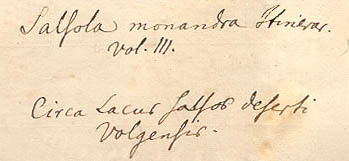 Salsola monandra Itinerar.
Vol. III.
Circa Lacus salsos deserti
Volgensis.